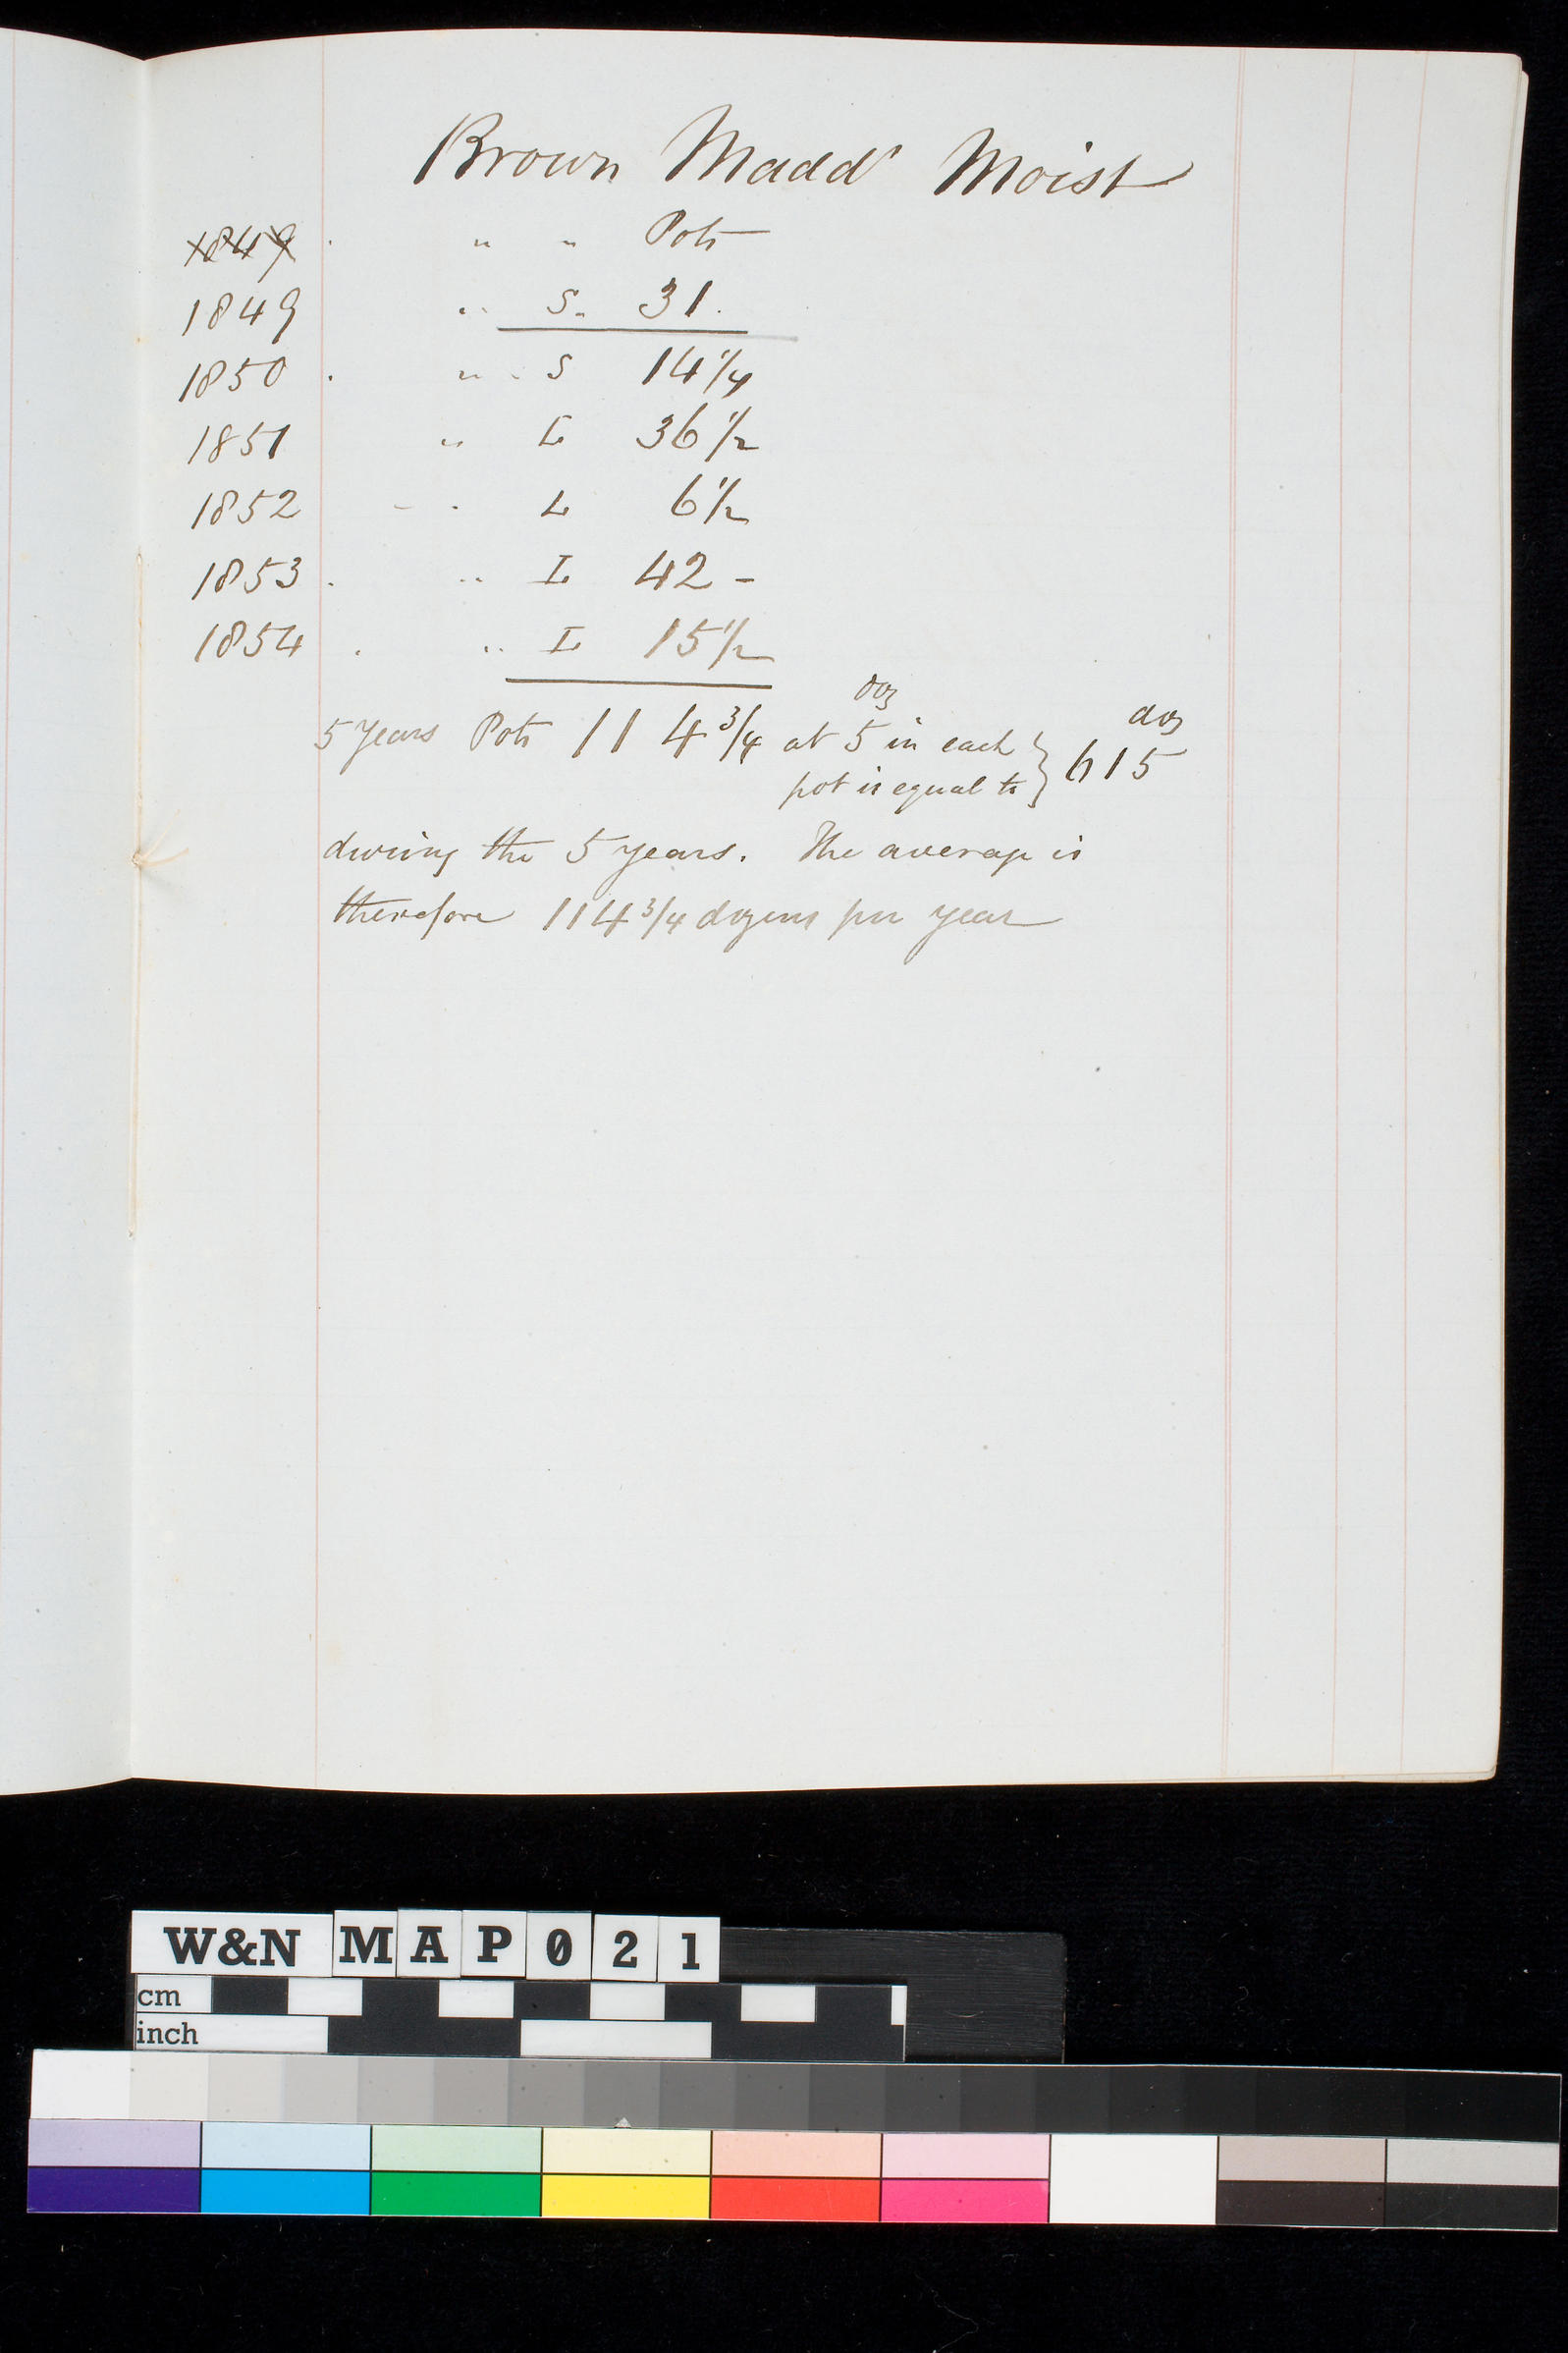 Brown Maddr Moist
1849 . " " Pots
1849 " S. 31.
1850 . " . S 14 1/4
1851 " L 36 1/2
1852 - . L 6 1/2
1853 . " L 42 -
1854 . " L 15 1/2
doz
doz
5 Years Pots 114 3/4 at 5 in each } 615
pot is equal to
during the 5 years. The average is
therefore 114 3/4 dozens per year
W&N MAP021
cm
inch